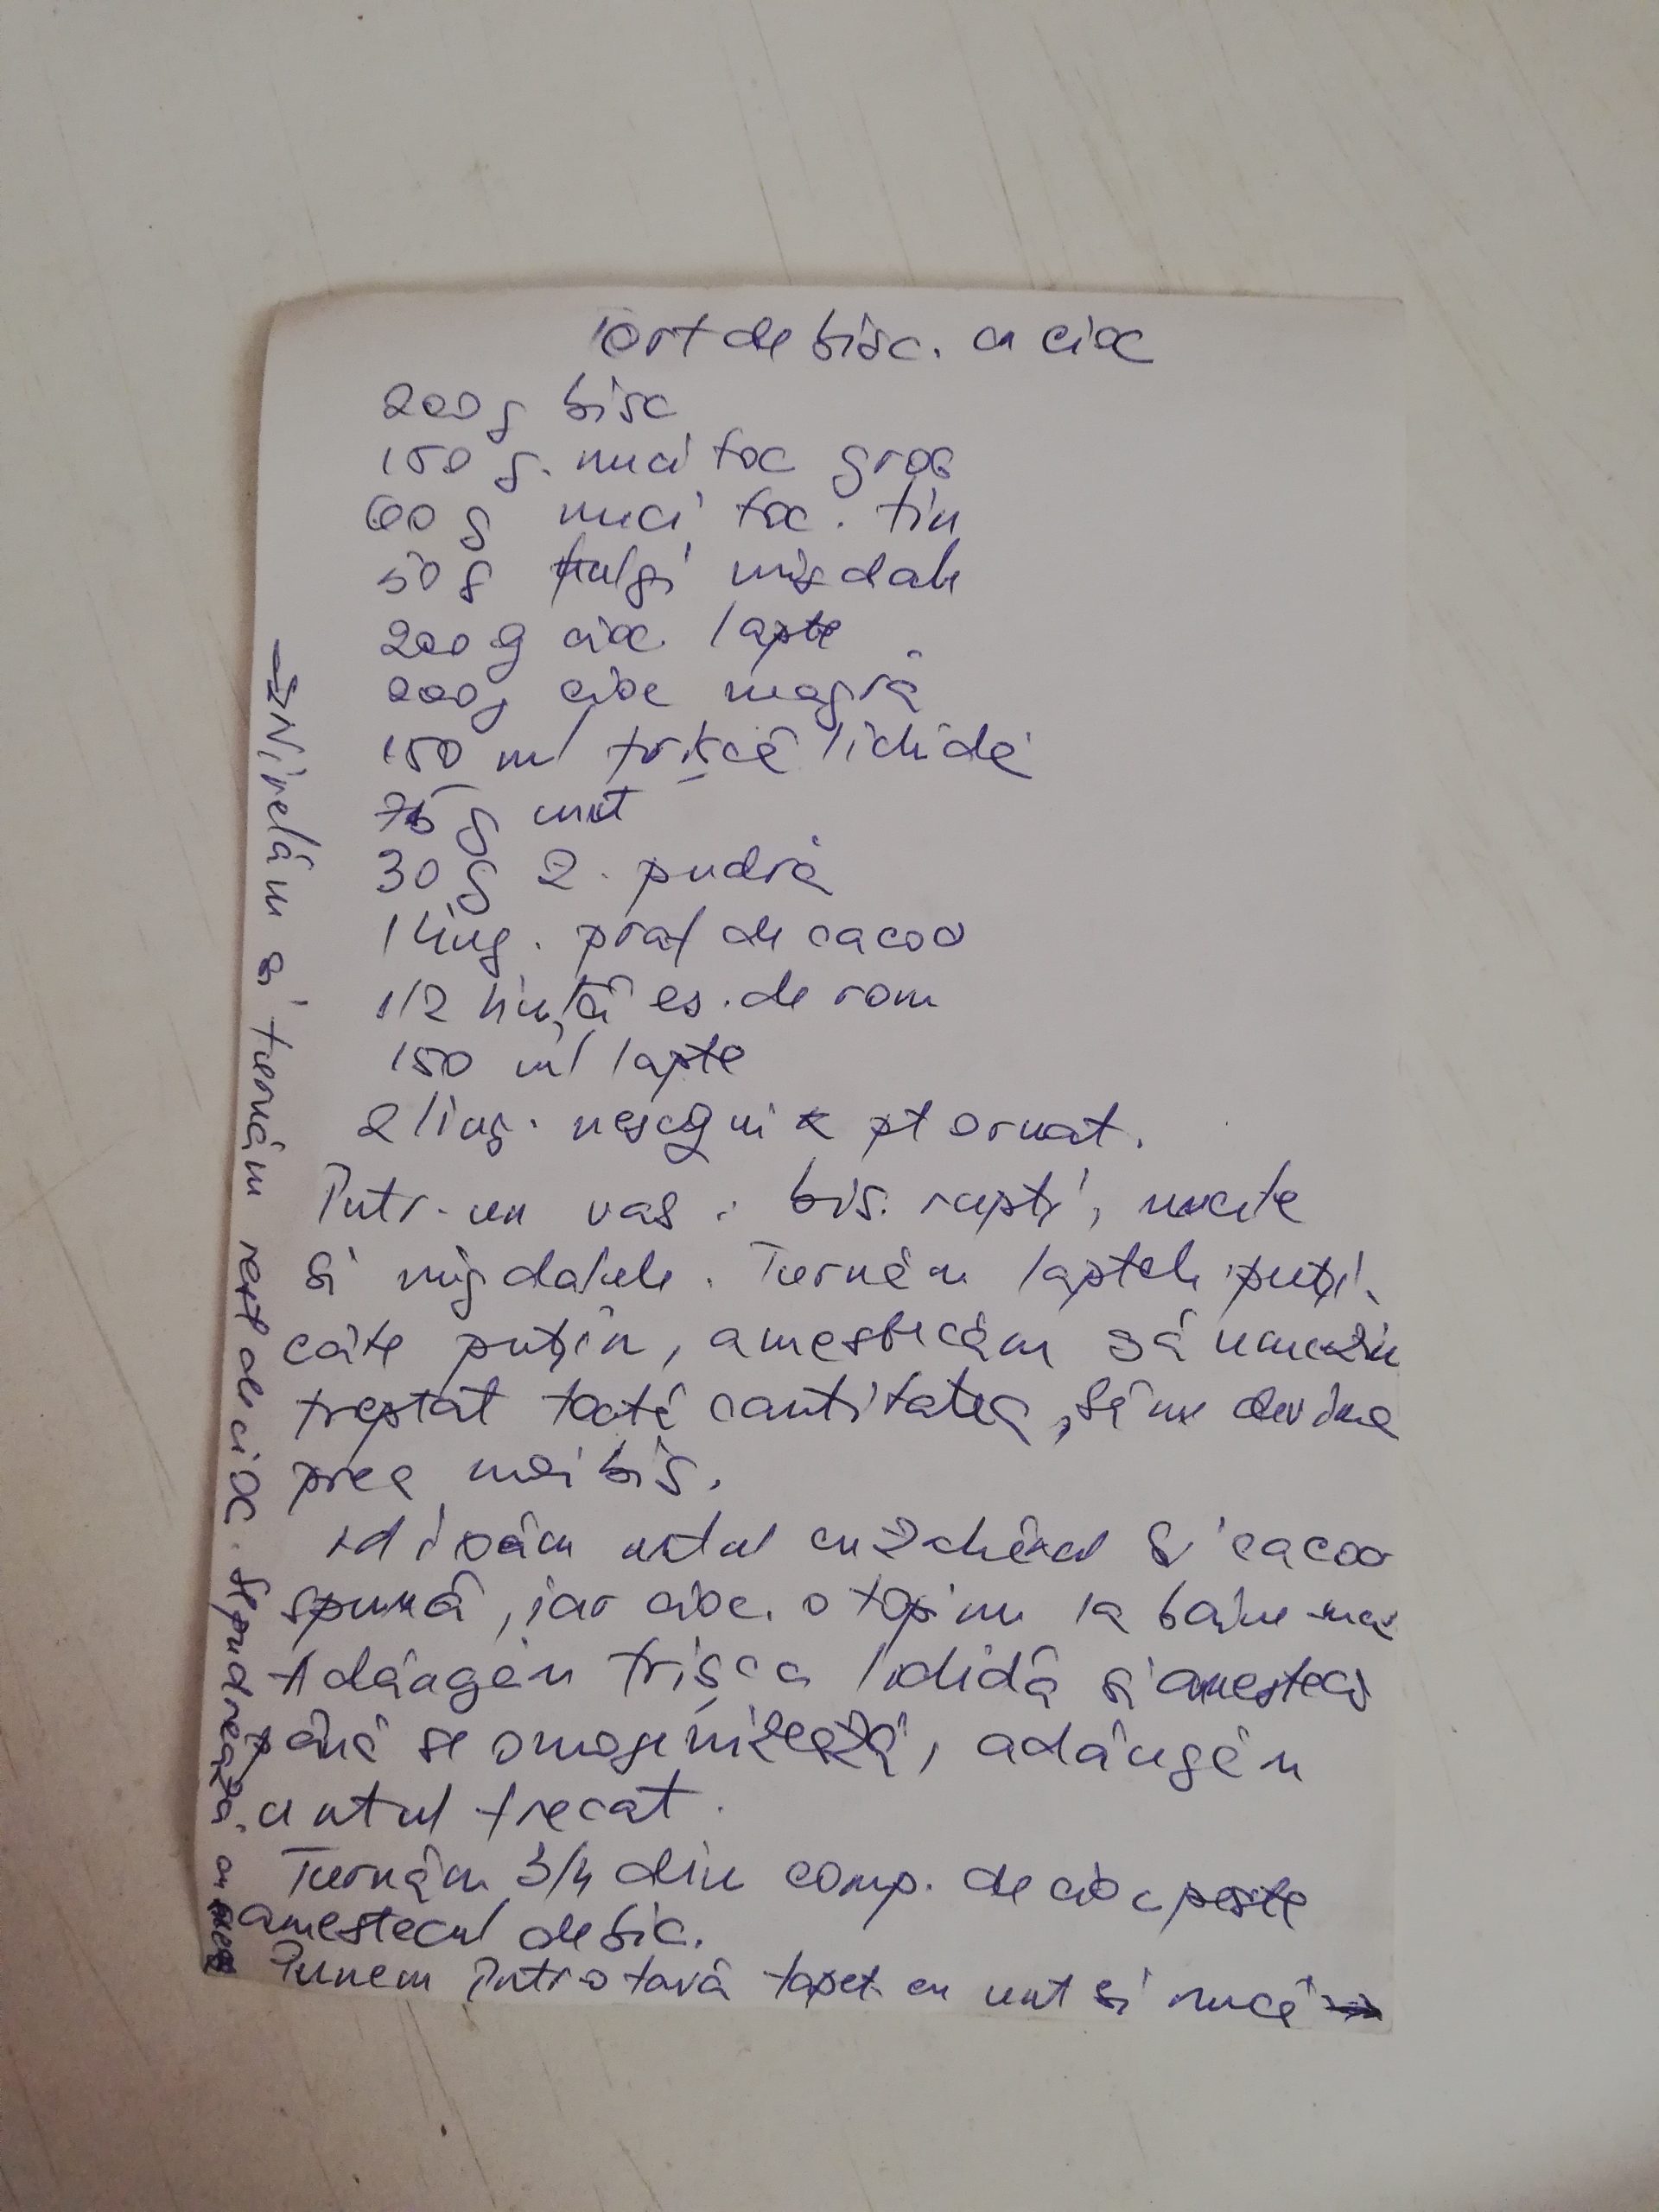 Tort de bisc. cu cioc
200 g bisc
150 g. nuci toc gros
60 g nuci toc. fin
50 g fulgi migdale
200 g cioc. lapte
200 g cioc neagră
150 ml frișcă lichidă
75 g unt
30 g z. pudră
1 ling. praf de cacao
1/2 linț̦ă es. de rom
150 ml lapte
2 ling. nesquik pt ornat.
Într-un vas: bis. rupți, nucile
și migdalele. Turnăm laptele puțin
câte puțin, amestecăm să umezim
treptat toată cantitatea, să nu devină
prea moi bis.
untul cu zahărul și cacao
spumă, iar cioc. o topim la baine mar
Adăugăm frișca lichidă și amestec
până se omogenizează, adăugăm
untul frecat.
Turnăm 3/4 din comp. de cioc peste
amestecul de bic.
Punem într-o tavă tapet. cu unt și nucă →
→ Nivelăm și turnăm rest de cioc. Se pudrează cu nesq